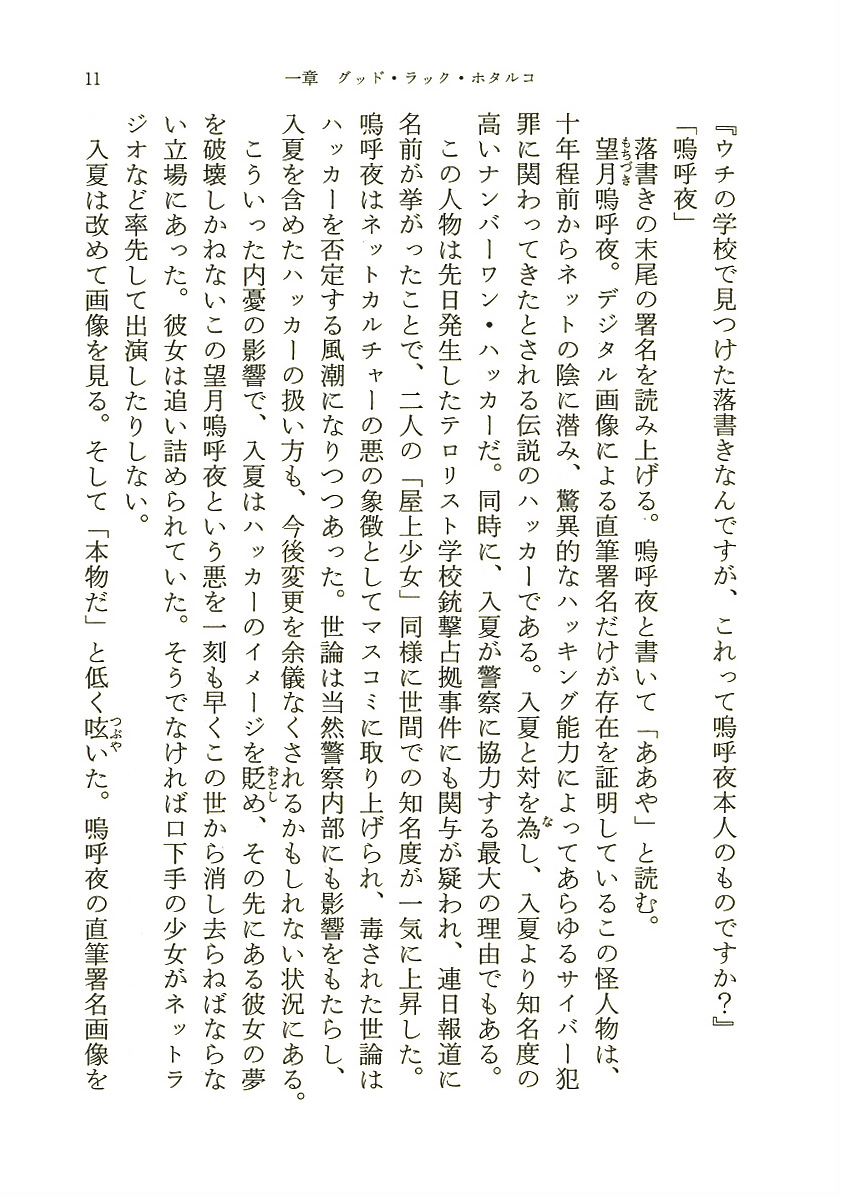 11
一章　グッド・ラック・ホタルコ
『ウチの学校で見つけた落書きなんですが、これって嗚呼夜本人のものですか？』
「嗚呼夜」
落書きの末尾の署名を読み上げる。嗚呼夜と書いて「ああや」と読む。
望月嗚呼夜。デジタル画像による直筆署名だけが存在を証明しているこの怪人物は、
もちづき
十年程前からネットの陰に潜み、驚異的なハッキング能力によってあらゆるサイバー犯
罪に関わってきたとされる伝説のハッカーである。入夏と対を為し、入夏より知名度の
な
高いナンバーワン・ハッカーだ。同時に、入夏が警察に協力する最大の理由でもある。
この人物は先日発生したテロリスト学校銃撃占拠事件にも関与が疑われ、連日報道に
名前が挙がったことで、二人の「屋上少女」同様に世間での知名度が一気に上昇した。
嗚呼夜はネットカルチャーの悪の象徴としてマスコミに取り上げられ、毒された世論は
ハッカーを否定する風潮になりつつあった。世論は当然警察内部にも影響をもたらし、
入夏を含めたハッカーの扱い方も、今後変更を余儀なくされるかもしれない状況にある。
こういった内憂の影響で、入夏はハッカーのイメージを貶め、その先にある彼女の夢
おとし
を破壊しかねないこの望月嗚呼夜という悪を一刻も早くこの世から消し去らねばならな
い立場にあった。彼女は追い詰められていた。そうでなければ口下手の少女がネットラ
ジオなど率先して出演したりしない。
入夏は改めて画像を見る。そして「本物だ」と低く呟いた。嗚呼夜の直筆署名画像を
つぶや